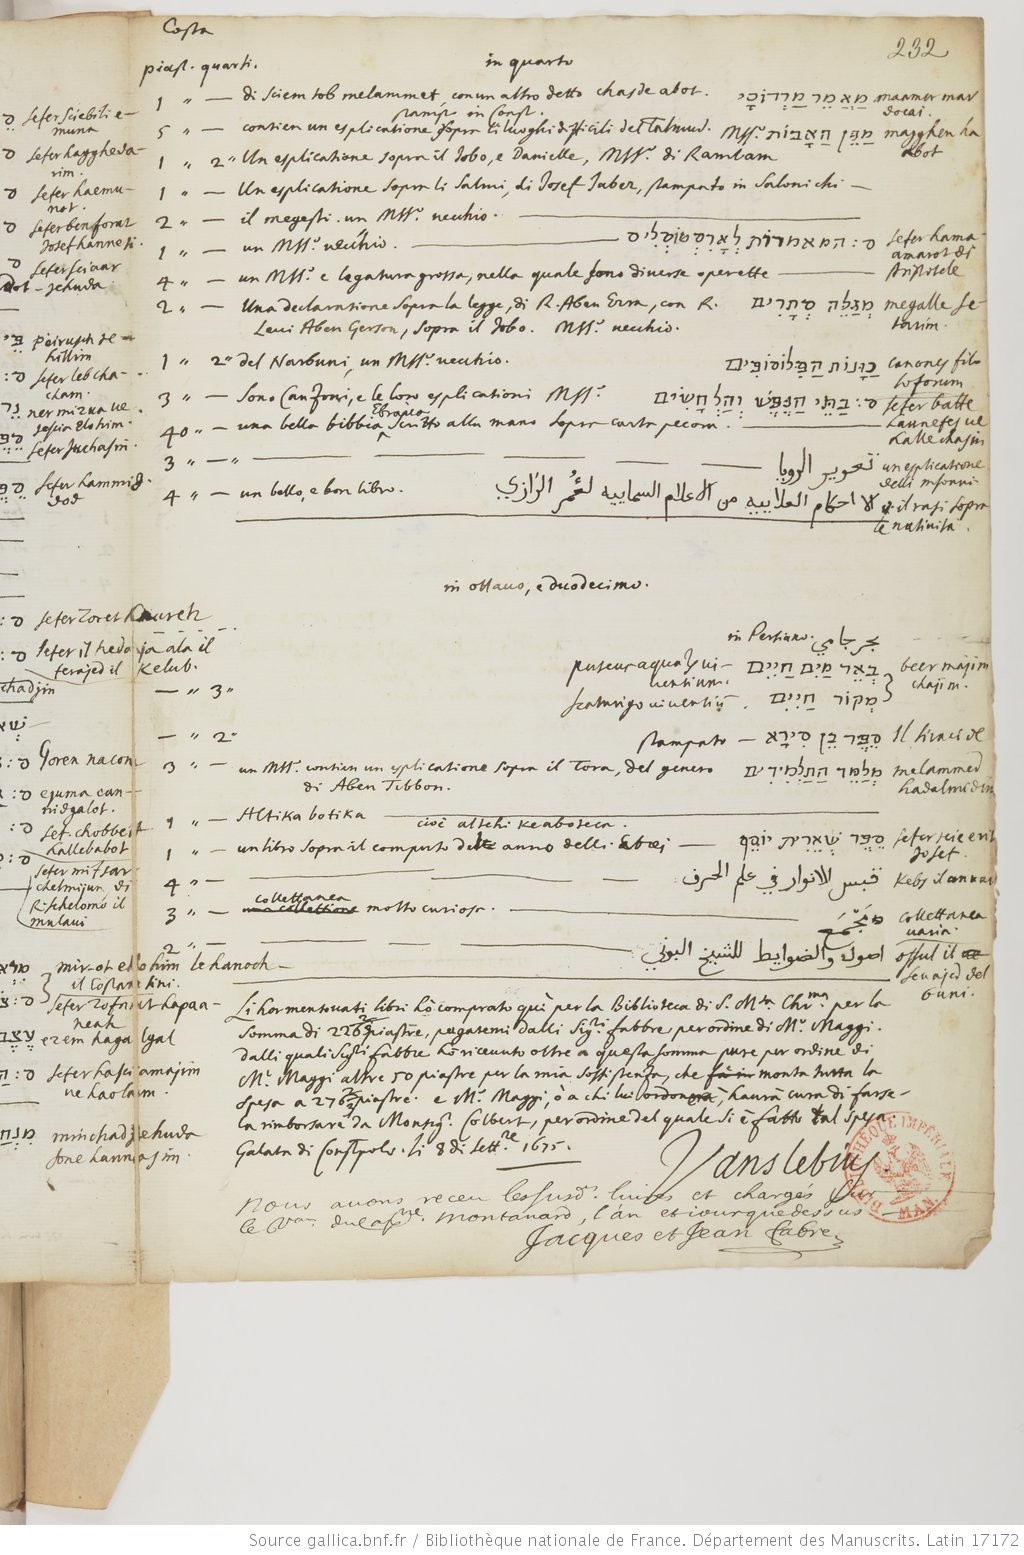 232
Costa
piast. quarti.
in quarto
1 " — di Sciem tob melammet, con un altro detto chasde abot. מַאֲמַר מַרְדוֹכַי maamer mar
stamp. in Const. docai.
5 " — contien un esplicatione sopra li luoghi difficili del Talmud. Mss.^r מָגֵן הַאָבוֹת magghen ha
abot
1 " 2" Un esplicatione sopra il Jobo, e Danielle, Mss.^r di Rambam
1 " — Un esplicatione sopra li Salmi, di Josef Jabez, stampato in Salonichi —
2 " — il megesti. un Mss.^r vecchio.
1 " — un Mss.^r vecchio. ס: המאמרות לְאָרִסְטוֹטֵלִיס sefer hama-
amarot di
4 " — un Mss.^r e legatura grossa, nella quale sono diverse operette — Aristotele
2 " — Una declaratione sopra la legge, di R. Aben Ezra, con R. מְגַלֵּה סְתָרִים megalle se-
Levi Aben Gerson, sopra il Jobo. Mss.^r vecchio. tarim.
1 " 2" del Narbuni, un Mss.^r vecchio. כַּוָּנוֹת הַפִּלוֹסוֹפִים canones filo
soforum
3 " — Sono Canzoni, e le loro esplicationi Mss.^r ס: בָתֵּי הַנֶּפֶשׁ וְהַלְחָשִׁים sefer batte
Ebraica hannefes ve
40 " — una bella bibbia, scritto alla mano sopra carta pecora. hallechasim
3 " — " تحوير الرويا un esplicatione
delli insonni
4 " — un bello, e bon libro. الاحكام العلاييه من الاعلام السماييه لعمر الرازي il rasi sopra
le nativita.
in ottavo, e duodecimo.
in Persiano. جرجامي
puteus aquarum vi- בְּאֵר מַיִם חַיִּים beer majim
ventium. chajim.
— " 3" scaturigo viventium מְקוֹר חַיִּים
— " 2" stampato — סֵפֶר בֶן סִירָא Il Sirac de
3 " — un Mss.^r contien un esplicatione sopra il Tora, del genero מְלַמֵּד הַתַּלְמִידִים melammed
di Aben Tibbon. hadalmidim
1 " — Altika botika
cioè altehi keaboteca.
1 " — un libro sopra il computo dell anno delli Ebrei — סֵפֶר שְׁאֵרִית יוֹסֵף sefer scieerit
Josef.
4 " — قبس الانوار في علم الحرف kebs il anuar
collettanea
3 " — una collettione molto curiosa. مجمع collettanea
varia.
2 " — اصول والضوابط للشيخ البوني ossul il
sevajed del
buni.
Li hor mentuati libri hò comprato quì per la Biblioteca di S. M.^ta Chr.^ma per la
somma di 226 piastre, pagatemi dalli Sig.^ri fabbre per ordine di M.^r Maggi.
dalli quali Sig.^ri fabbre hò ricevuto oltre a questa somma pure per ordine di
M.^r Maggi altre 50 piastre per la mia sossistenza, che fà in monta tutta la
spesa a 276 piastre. e M.^r Maggi, ò a chi lui ordonerà, haurà cura di farse-
la rimborsare da Monsig.^r Colbert, per ordine del quale si è fatto tal spesa.
Galata di Constpoli. li 8 di sett.^re 1675.
Vanslebius
Nous avons receu les susd.^s livres et chargés sur
le Vau. du Cap.^ne Montanard, l'an et iour que dessus
Jacques et Jean Fabre
sefer sciebili e-
muna
sefer haggheda-
rim.
sefer haemu-
not.
sefer ben forat
Josef hannesi.
sefer sciaar
Jehuda
peirusch te-
hillim
sefer leb cha-
cham.
ner mizva ve
sefer Juchasin
sefer hammid-
dod
sefer Zoret hamureh
sefer il hedaja ala il
ferajed il kelub.
chadjin
Goren nacon
eguma can-
nidgalot.
sef. chobbert
hallebabot
sefer mifsar
chelmijun di
R. Schelomò il
mulavi
mir-ot elohim le hanoch —
il Costantini.
sefer zofnat hapaa-
neah
ezem haga lgal
sefer haseiamajim
ve haolam.
minchad jehuda
sone hannasim.
BIBLIOTHEQUE IMPÉRIALE
MAN.
Source gallica.bnf.fr / Bibliothèque nationale de France. Département des Manuscrits. Latin 17172